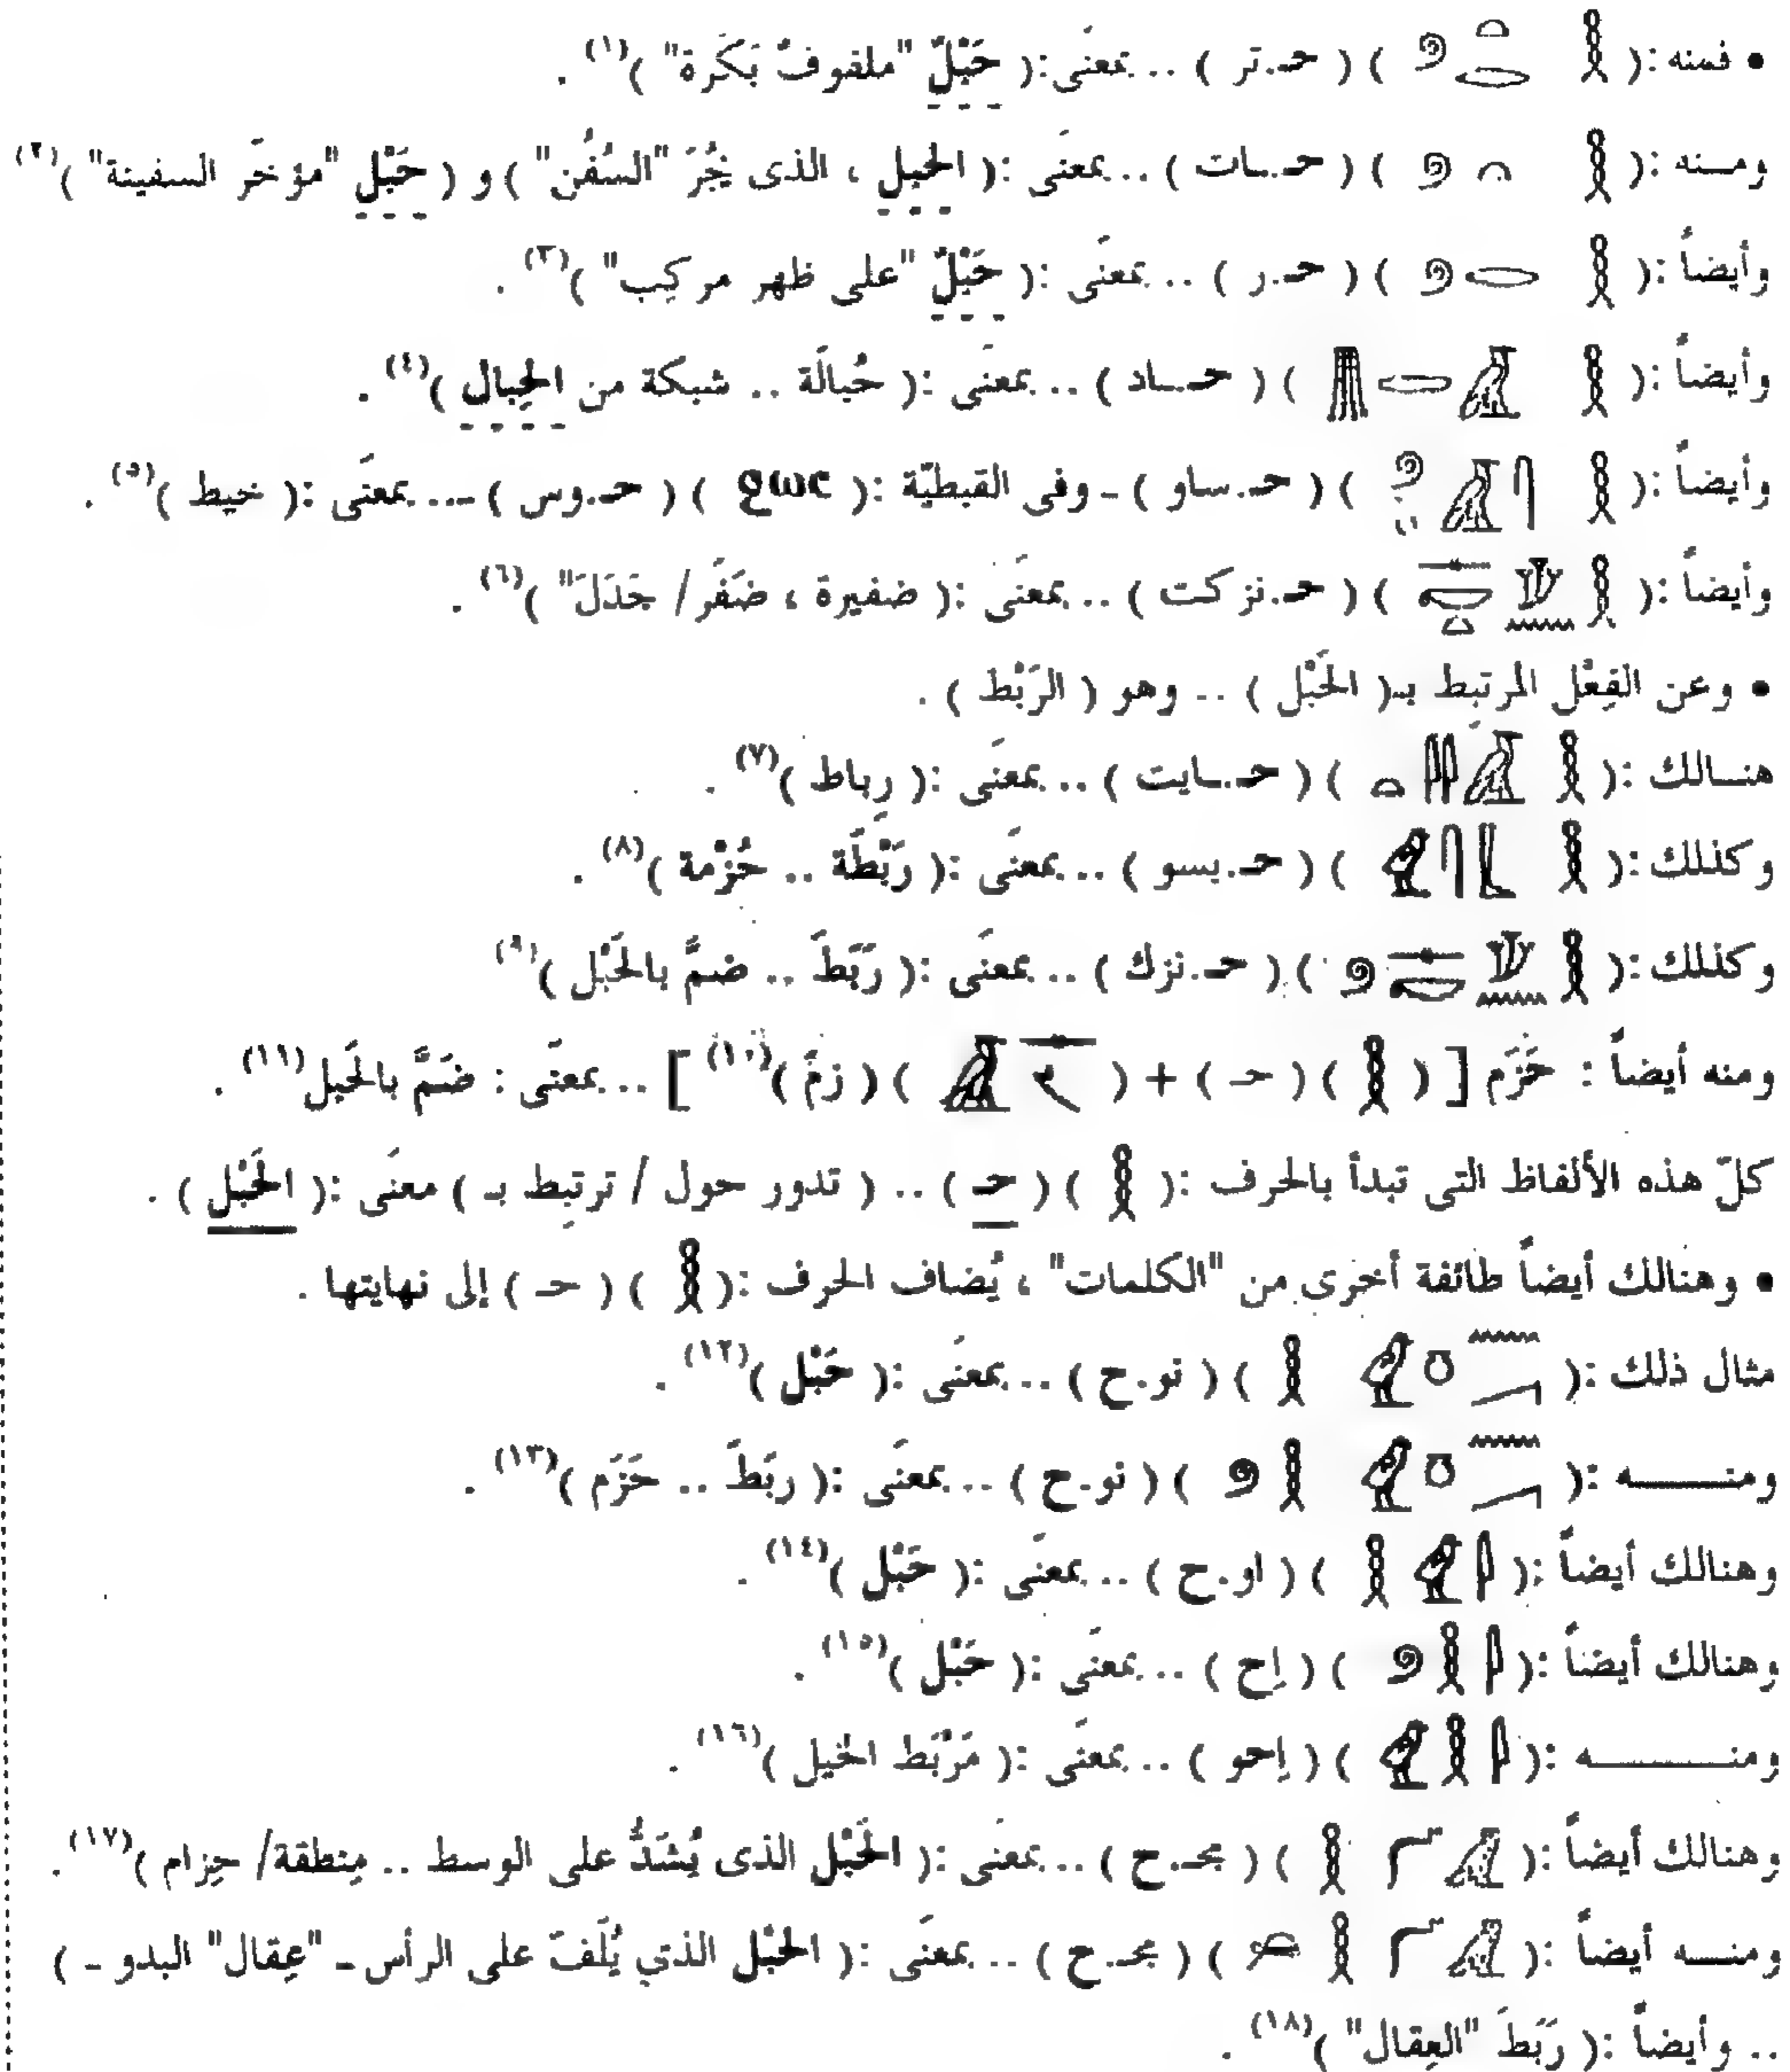 • فمنه :( 𓎛 𓏏𓂋 𓍢 ) ( حـ.تر ) .. بمعنَى :( حَبْلٌ "ملفوفٌ بَكَرة" )(١) .
ومـنه :( 𓎛 𓏏 𓍢 ) ( حـ.ـات ) ... بمعنَى :( الحَبل ، الذى يَجُرّ "السُفُن" ) و ( حَبْل "مؤخّر السفينة" )(٢)
وأيضاً :( 𓎛 𓂋 𓍢 ) ( حـ.ر ) .. بمعنَى :( حَبْلٌ "على ظهر مركِب" )(٣) .
وأيضاً :( 𓎛 𓄿 𓂧 ) ( حـ.ـاد ) .. بمعنَى :( حُبالَة .. شبكة من الحِبال )(٤) .
وأيضاً :( 𓎛 𓋴 𓄿 𓍢 ) ( حـ.ساو ) - وفى القبطيّة :( ϩⲱⲥ ) ( حـ.وس ) ... بمعنَى :( خيط )(٥) .
وأيضاً :( 𓎛 𓇉 𓈖 𓊃 𓎡 𓏏 ) ( حـ.نزكت ) .. بمعنَى :( ضفيرة ، ضَفَر/ جَدَلَ" )(٦) .
• وعن الفِعْل المرتبِط بـ( الحَبْل ) .. وهو ( الرَبْط ) .
هنـالك :( 𓎛 𓄿 𓇌 𓏏 ) ( حـ.ـايت ) .. بمعنَى :( رِباط )(٧) .
وكذلك :( 𓎛 𓃀 𓋴 𓅱 ) ( حـ.بسو ) .. بمعنَى :( رَبْطَة .. حُزْمة )(٨) .
وكذلك :( 𓎛 𓇉 𓈖 𓊃 𓎡 𓍢 ) ( حـ.نزك ) .. بمعنَى :( رَبَطَ .. ضمَّ بالحَبْل )(٩)
ومنه أيضاً : حَزَم [ ( 𓎛 ) ( حـ ) + ( 𓊃 𓌳 𓄿 ) ( زمّ )(١٠) ] ... بمعنَى : ضَمَّ بالحَبل(١١) .
كلّ هذه الألفاظ التى تبدأ بالحرف :( 𓎛 ) ( حـ ) .. ( تدور حول / ترتبِط بـ ) معنَى :( الحَبْل ) .
• وهنالك أيضاً طائفة أخرى من "الكلمات" ، يُضاف الحرف :( 𓎛 ) ( حـ ) إلى نهايتها .
مثال ذلك :( 𓈖 𓏌 𓅱 𓎛 ) ( نو.ح ) ... بمعنَى :( حَبْل )(١٢) .
ومنــــه :( 𓈖 𓏌 𓅱 𓎛 𓍢 ) ( نو.ح ) ... بمعنَى :( ربَطَ .. حَزَم )(١٣) .
وهنالك أيضاً :( 𓇋 𓅱 𓎛 ) ( او.ح ) .. بمعنَى :( حَبْل )(١٤) .
وهنالك أيضاً :( 𓇋 𓎛 𓍢 ) ( إح ) .. بمعنَى :( حَبْل )(١٥) .
ومنــــــه :( 𓇋 𓎛 𓅱 ) ( إحو ) .. بمعنَى :( مَرْبَط الخيل )(١٦) .
وهنالك أيضاً :( 𓅓 𓎛 ) ( محـ.ح ) ... بمعنَى :( الحَبْل الذى يُشَدُّ على الوسط .. مِنطقة/ حِزام )(١٧) .
ومنـــه أيضاً :( 𓅓 𓎛 ) ( محـ.ح ) .. بمعنَى :( الحبْل الذي يُلَفّ على الرأس - "عِقال" البدو - )
.. وأيضاً :( رَبَطَ "العِقال" )(١٨) .